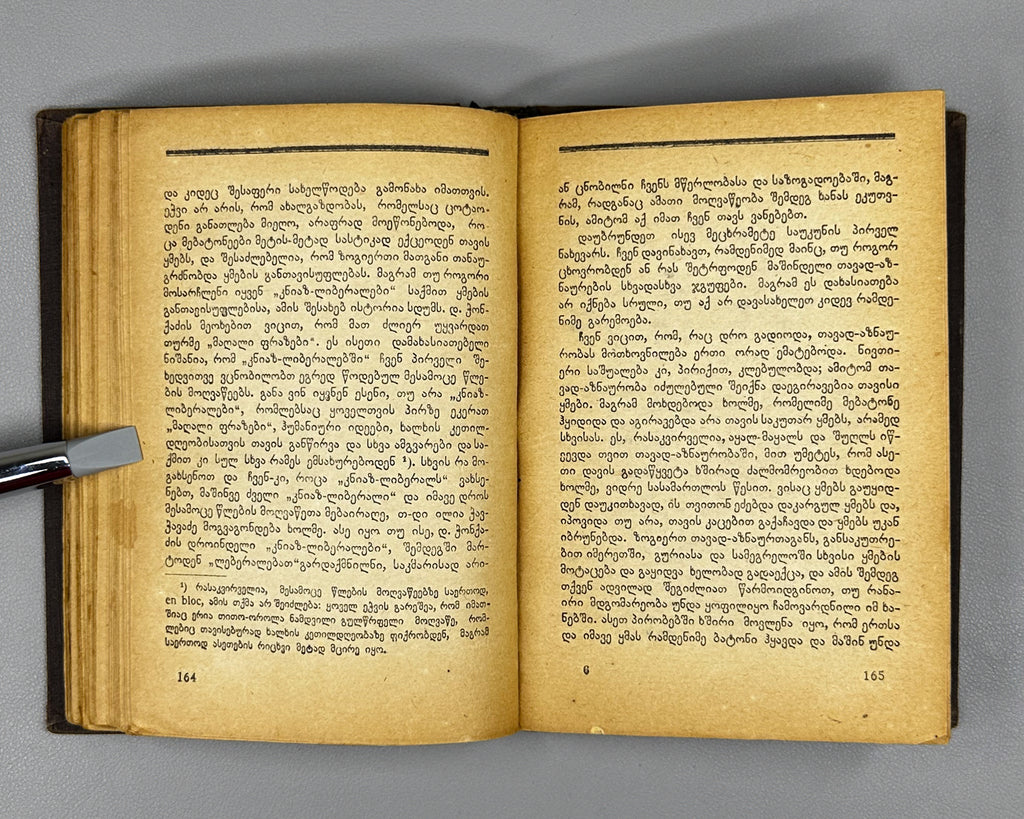 და კიდეც შესაფერი სახელწოდება გამონახა იმათთვის.
ეჭვი არ არის, რომ ახალგაზდობას, რომელსაც ცოტაო-
დენი განათლება მიეღო, არაფრად მოეწონებოდა, რო-
ცა მებატონეები მეტის-მეტად სასტიკად ექცეოდენ თავის
ყმებს, და შესაძლებელია, რომ ზოგიერთი მათგანი თანაუ-
გრძნობდა ყმების განთავისუფლებას. მაგრამ თუ როგორი
მოსარჩლენი იყვენ „კნიაზ-ლიბერალები“ საქმით ყმების
განთავისუფლებისა, ამის შესახებ ისტორია სდუმს. დ. ჭონ-
ქაძის მეოხებით ვიცით, რომ მათ ძლიერ უყვარდათ
თურმე „მაღალი ფრაზები“. ეს ისეთი დამახასიათებელი
ნიშანია, რომ „კნიაზ-ლიბერალებში“ ჩვენ პირველი შე-
ხედვითვე ვცნობილობთ ეგრედ წოდებულ მესამოცე წლე-
ბის მოღვაწეებს. განა ვინ იყვნენ ესენი, თუ არა „კნიაზ-
ლიბერალები“, რომლებსაც ყოველთვის პირზე ეკერათ
„მაღალი ფრაზები“, ჰუმანიური იდეები, ხალხის კეთილ-
დღეობისათვის თავის განწირვა და სხვა ამგვარები და სა-
ქმით კი სულ სხვა რამეს ემსახურებოდენ ¹). სხვის რა მო-
გახსენოთ და ჩვენ-კი, როცა „კნიაზ-ლიბერალს“ ვახსე-
ნებთ, მაშინვე ძველი „კნიაზ-ლიბერალი“ და იმავე დროს
მესამოცე წლების მოღვაწეთა მებაირაღე, თ-დი ილია ჭავ-
ჭავაძე მოგვაგონდება ხოლმე. ასე იყო თუ ისე, დ. ჭონქა-
ძის დროინდელი „კნიაზ-ლიბერალები“, შემდეგში მარ-
ტოდენ „ლებერალებათ“ გარდაქმნილნი, საკმარისად არი-
¹) რასაკვირველია, მესამოცე წლების მოღვაწეებზე საერთოდ,
en bloc, ამის თქმა არ შეიძლება: ყოველ ეჭვის გარეშეა, რომ იმათ-
შიაც ერია თითო-ოროლა ნამდვილი გულწრფელი მოღვაწე, რომ-
ლებიც თავისებურად ხალხის კეთილდღეობაზე ფიქრობდენ, მაგრამ
საერთოდ ასეთების რიცხვი მეტად მცირე იყო.
164
ან ცნობილნი ჩვენს მწერლობასა და საზოგადოებაში, მაგ-
რამ, რადგანაც ამათი მოღვაწეობა შემდეგ ხანას ეკუთვ-
ნის, ამიტომ აქ იმათ ჩვენ თავს ვანებებთ.
დაუბრუნდეთ ისევ მეცხრამეტე საუკუნის პირველ
ნახევარს. ჩვენ დავინახავთ, რამდენიმედ მაინც, თუ როგორ
ცხოვრობდენ ან რას შეტრფოდენ მაშინდელი თავად-აზ-
ნაურების სხვადასხვა ჯგუფები. მაგრამ ეს დახასიათება
არ იქნება სრული, თუ აქ არ დავასახელეთ კიდევ რამდე-
ნიმე გარემოება.
ჩვენ ვიცით, რომ, რაც დრო გადიოდა, თავად-აზნაუ-
რობას მოთხოვნილება ერთი ორად ემატებოდა. ნივთი-
ერი საშუალება კი, პირიქით, კლებულობდა; ამიტომ თა-
ვად-აზნაურობა იძულებული შეიქნა დაეგირავებია თავისი
ყმები. მაგრამ მოხდებოდა ხოლმე, რომელიმე მებატონე
ჰყიდიდა და აგირავებდა არა თავის საკუთარ ყმებს, არამედ
სხვისას. ეს, რასაკვირველია, აყალ-მაყალს და შუღლს იწ-
ვევდა თვით თავად-აზნაურობაში, მით უმეტეს, რომ ასე-
თი დავის გადაწყვეტა ხშირად ძალმომრეობით ხდებოდა
ხოლმე, ვიდრე სასამართლოს წესით. ვისაც ყმებს გაუყიდ-
დენ დაუკითხავად, ის თვითონ ეძებდა დაკარგულ ყმებს და,
იპოვიდა თუ არა, თავის კაცებით გაქაჩავდა და ყმებს უკან
იბრუნებდა. ზოგიერთ თავად-აზნაურთაგანს, განსაკუთრე-
ბით იმერეთში, გურიასა და სამეგრელოში სხვისი ყმების
მოტაცება და გაყიდვა ხელობად გადაექცა, და ამის შემდეგ
თქვენ ადვილად შეგიძლიათ წარმოიდგინოთ, თუ რანა-
ირი მდგომარეობა უნდა ყოფილიყო ჩამოვარდნილი იმ ხა-
ნებში. ასეთ პირობებში ხშირი მოვლენა იყო, რომ ერთსა
და იმავე ყმას რამდენიმე ბატონი ჰყავდა და მაშინ უნდა
6
165